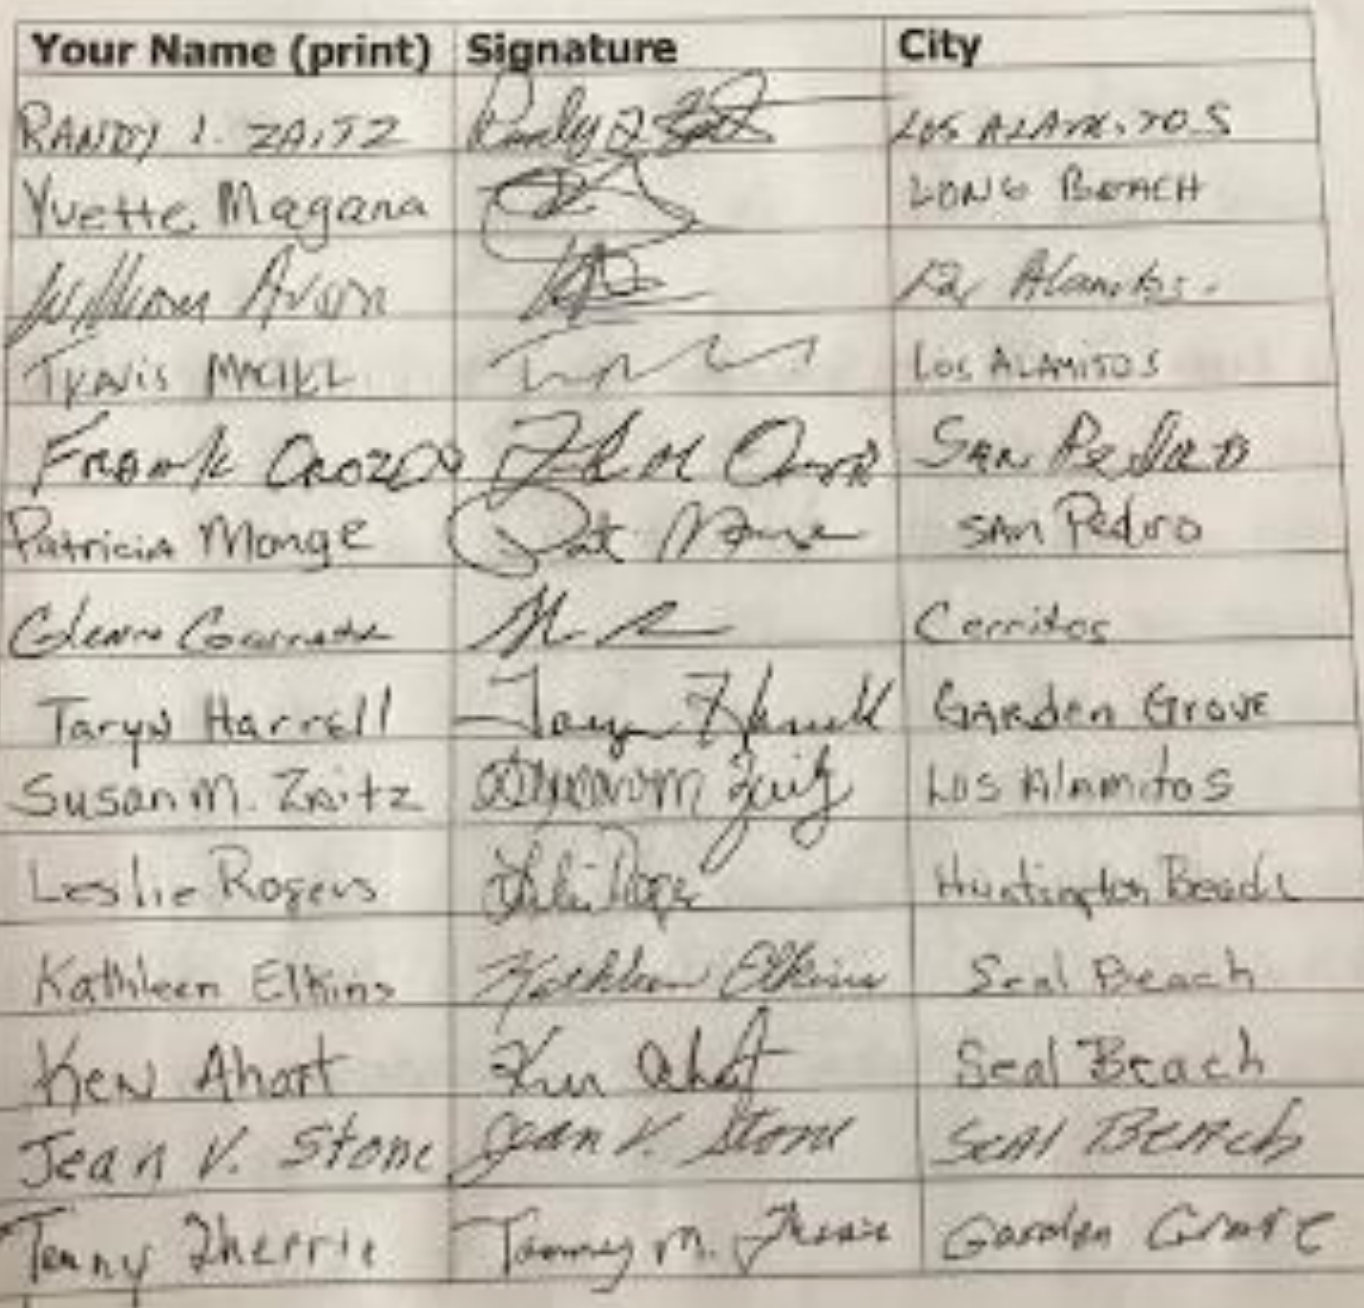 Your Name (print) Signature City
RANDY I. ZAITZ LOS ALAMITOS
Yvette Magana LONG BEACH
William Los Alamitos.
TRAVIS LOS ALAMITOS
Frank Orozco San Pedro
Patricia Monge Pat Monge San Pedro
Glenn Cerritos
Taryn Harrell Taryn Harrell Garden Grove
Susan M. Zaitz Susan M Zaitz Los Alamitos
Leslie Rogers Leslie Rogers Huntington Beach
Kathleen Elkins Kathleen Elkins Seal Beach
Ken Ahart Ken Ahart Seal Beach
Jean V. Stone Jean V. Stone Seal Beach
Tammy M. Garden Grove